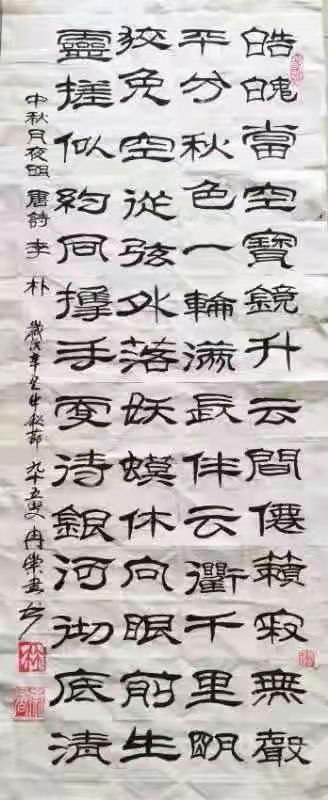 皓魄當空寶鏡升云間僊籟寂無聲
平分秋色一輪滿長伴云衢千里明
狡兔空從弦外落妖蟆休向眼前生
靈搓似約同攜手更待銀河沏底清
中秋月夜明 唐詩 李朴 歲次辛丑中秋節 九十五叟 冉崇